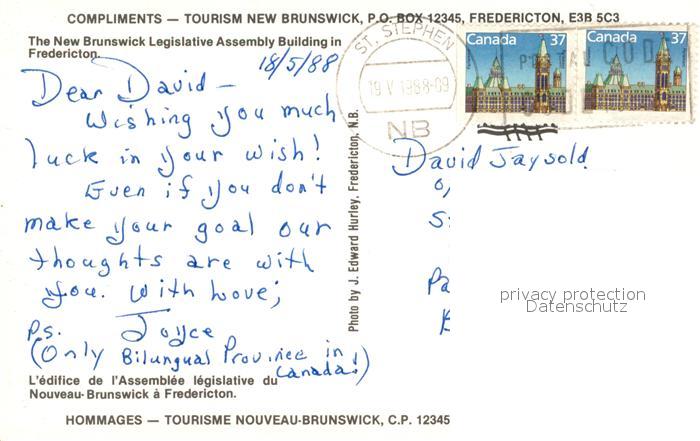 COMPLIMENTS — TOURISM NEW BRUNSWICK, P.O. BOX 12345, FREDERICTON, E3B 5C3
The New Brunswick Legislative Assembly Building in
Fredericton.
18/5/88
Dear David –
Wishing you much
luck in your wish!
Even if you don't
make your goal our
thoughts are with
you. With Love;
P.S. Joyce
(Only Bilungual Province in
Canada!)
L'édifice de l'Assemblée législative du
Nouveau-Brunswick à Fredericton.
HOMMAGES — TOURISME NOUVEAU-BRUNSWICK, C.P. 12345
Photo by J. Edward Hurley, Fredericton, N.B.
ST. STEPHEN
19 V 1988-09
NB
Canada 37
Canada 37
CODE
David Jaysold
privacy protection
Datenschutz